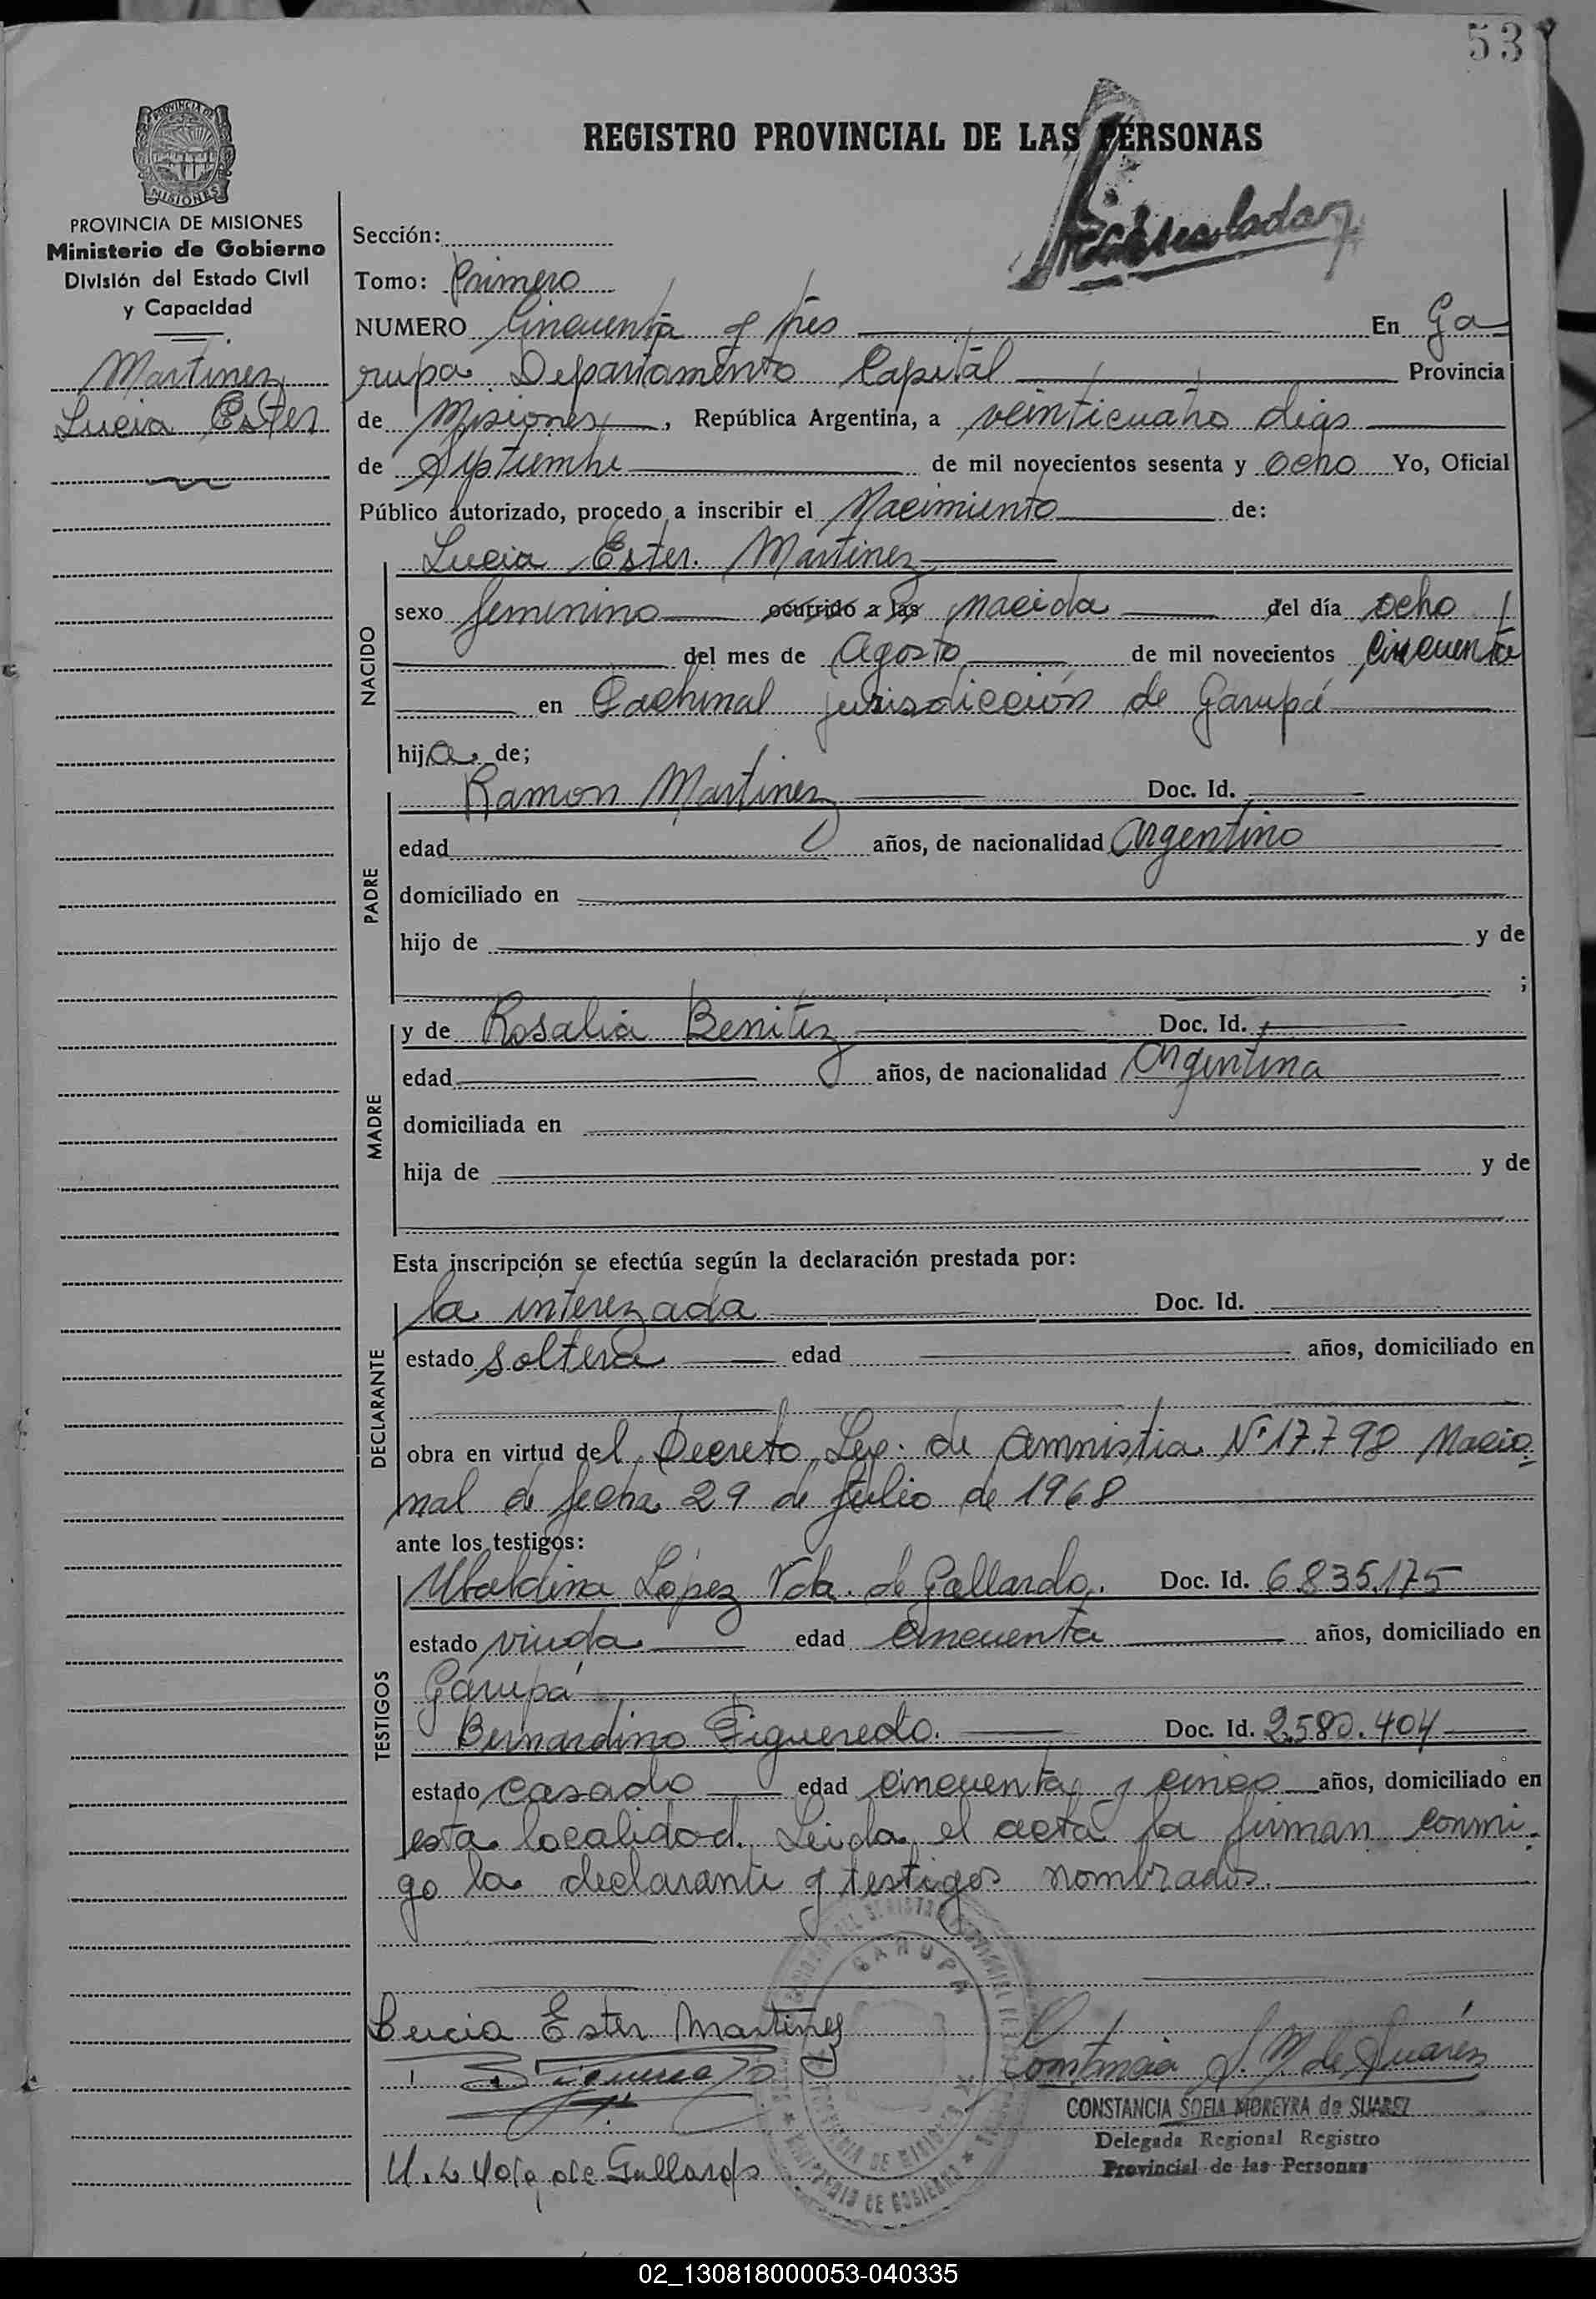 53
PROVINCIA DE
MISIONES
PROVINCIA DE MISIONES
Ministerio de Gobierno
División del Estado Civil
y Capacidad
Martinez
Lucia Ester
REGISTRO PROVINCIAL DE LAS PERSONAS
Sección:
Tomo: Primero
NUMERO Cincuenta y tres En Ga
rupa Departamento Capital Provincia
de Misiones, República Argentina, a veinticuatro dias
de Septiembre de mil novecientos sesenta y ocho Yo, Oficial
Público autorizado, procedo a inscribir el Nacimiento de:
Lucia Ester Martinez
NACIDO
sexo femenino ocurrido a las nacida del día ocho
del mes de Agosto de mil novecientos cincuenta
en Cachimal jurisdicción de Garupá
hija de;
PADRE
Ramon Martinez Doc. Id.
edad años, de nacionalidad Argentino
domiciliado en
hijo de y de
;
MADRE
y de Rosalia Benitez Doc. Id.
edad años, de nacionalidad Argentina
domiciliada en
hija de y de
Esta inscripción se efectúa según la declaración prestada por:
DECLARANTE
la interezada Doc. Id.
estado soltera edad años, domiciliado en
obra en virtud del Decreto Ley de Amnistia N° 17.798 Nacio
nal de fecha 29 de Julio de 1968
ante los testigos:
TESTIGOS
Ubaldina López Vda. de Gallardo. Doc. Id. 6.835.175
estado viuda edad cincuenta años, domiciliado en
Garupá
Bernardino Figueredo. Doc. Id. 2.580.404
estado casado edad cincuenta y cinco años, domiciliado en
esta localidad. Leida el acta la firman conmi
go la declarante y testigos nombrados.
Lucia Ester Martinez
Constancia S. M. de Suárez
CONSTANCIA SOFIA MOREYRA de SUAREZ
Delegada Regional Registro
Provincial de las Personas
U. L. Vda de Gallardo
GARUPA
PROVINCIA DE MISIONES
MINISTERIO DE GOBIERNO
02_130818000053-040335